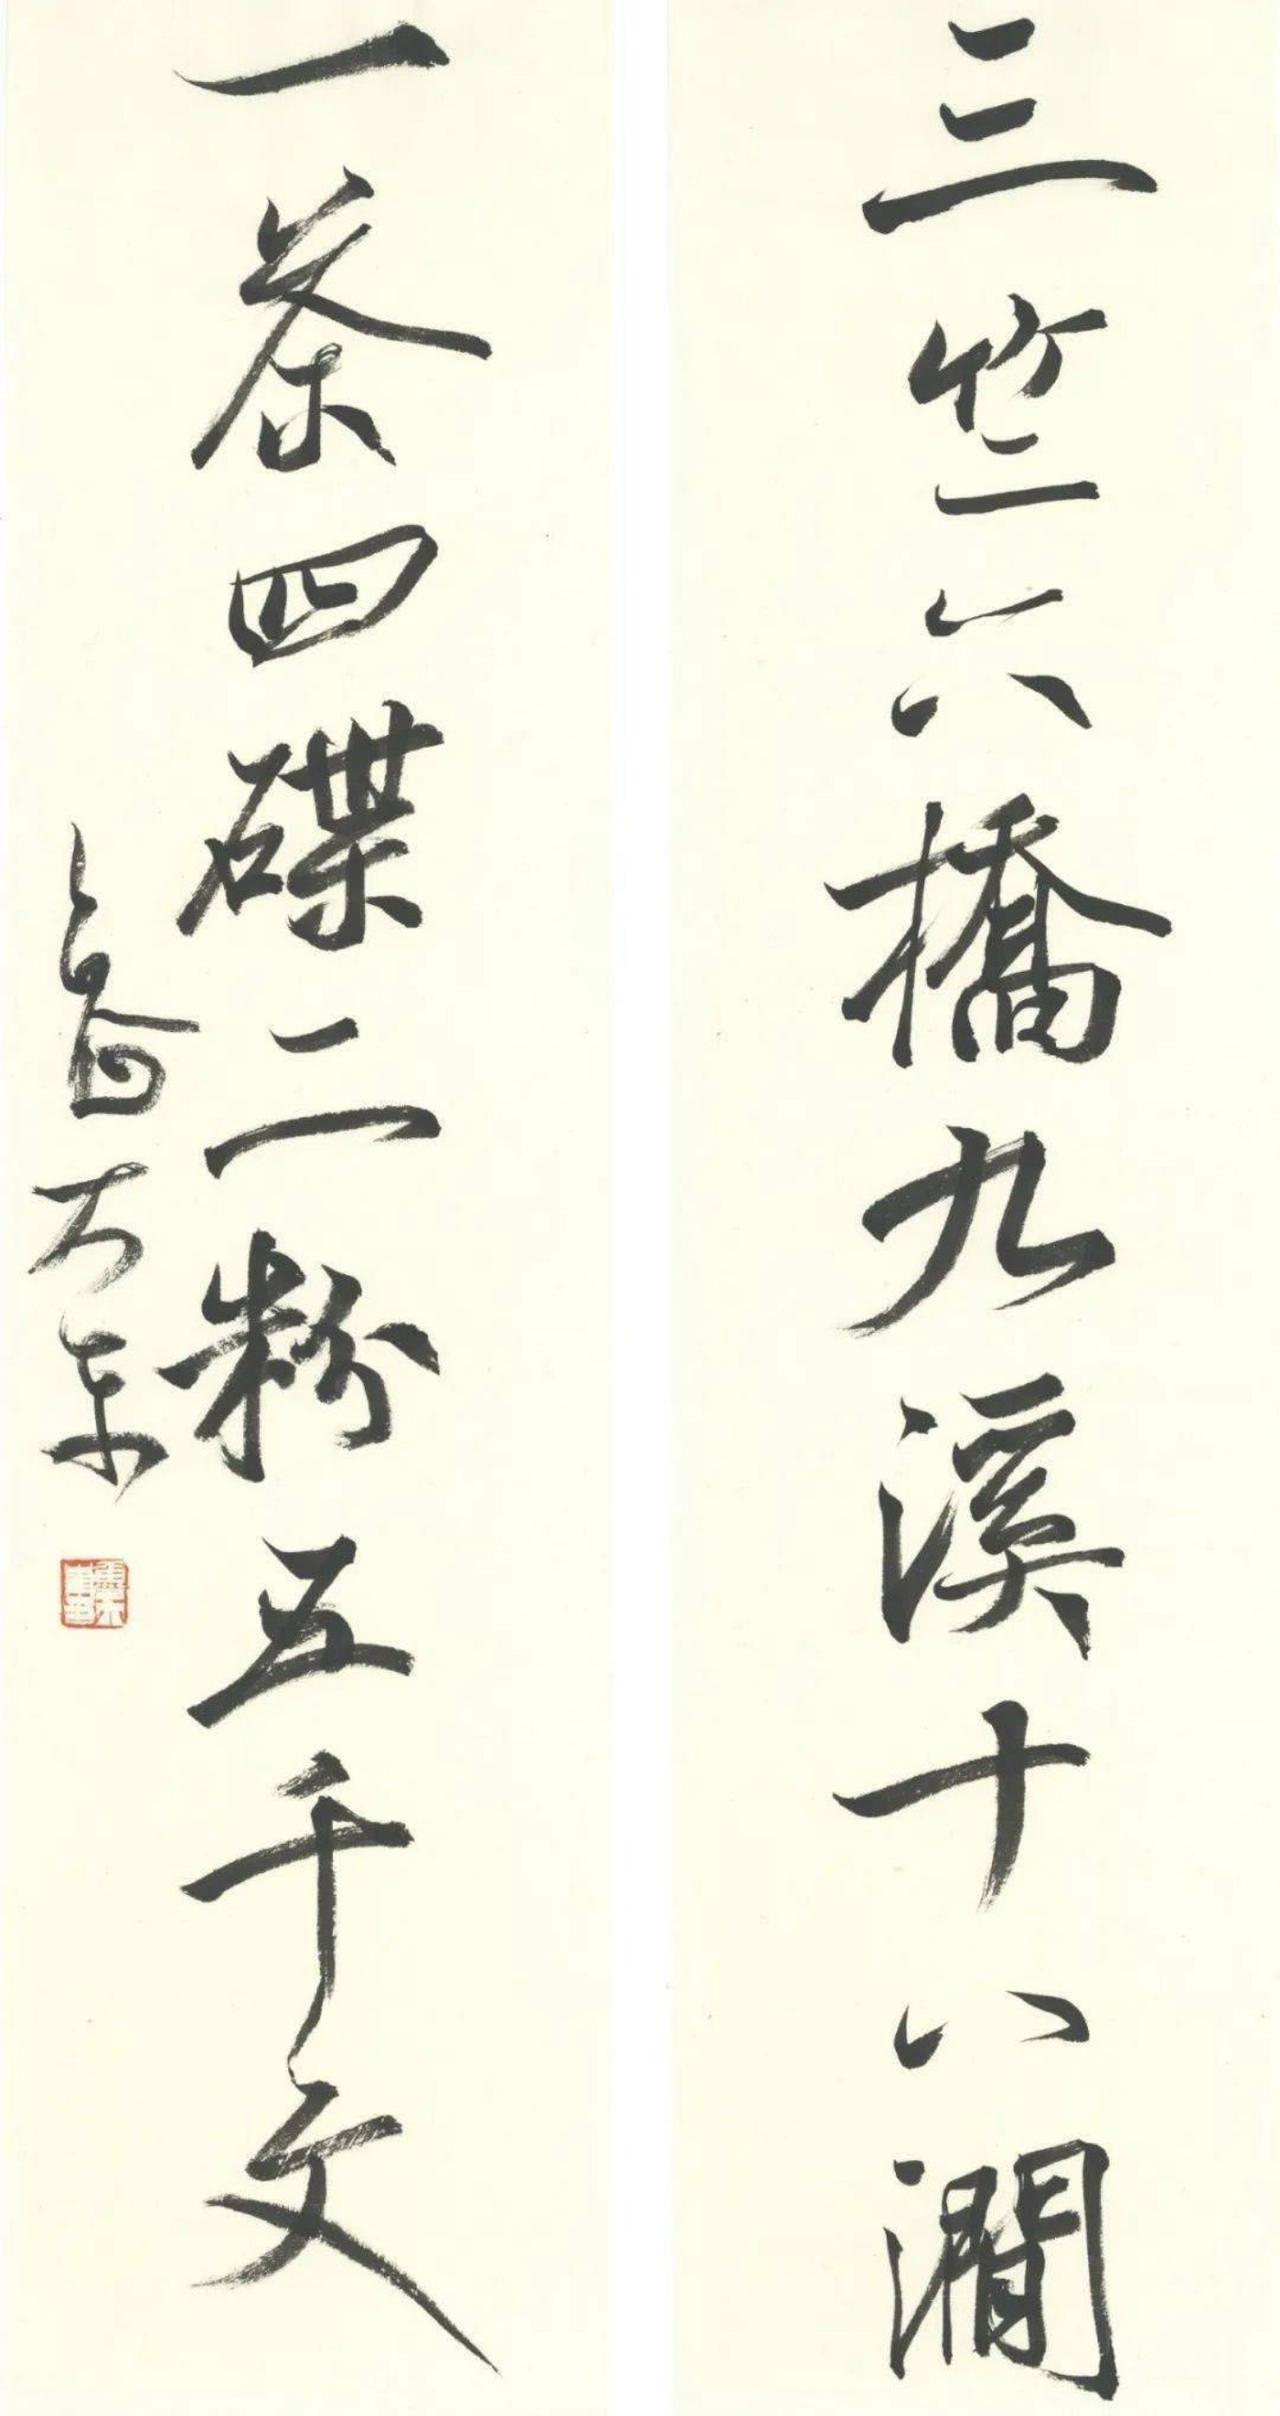 三竺六橋九溪十八澗
一茶四碟二粉五千文